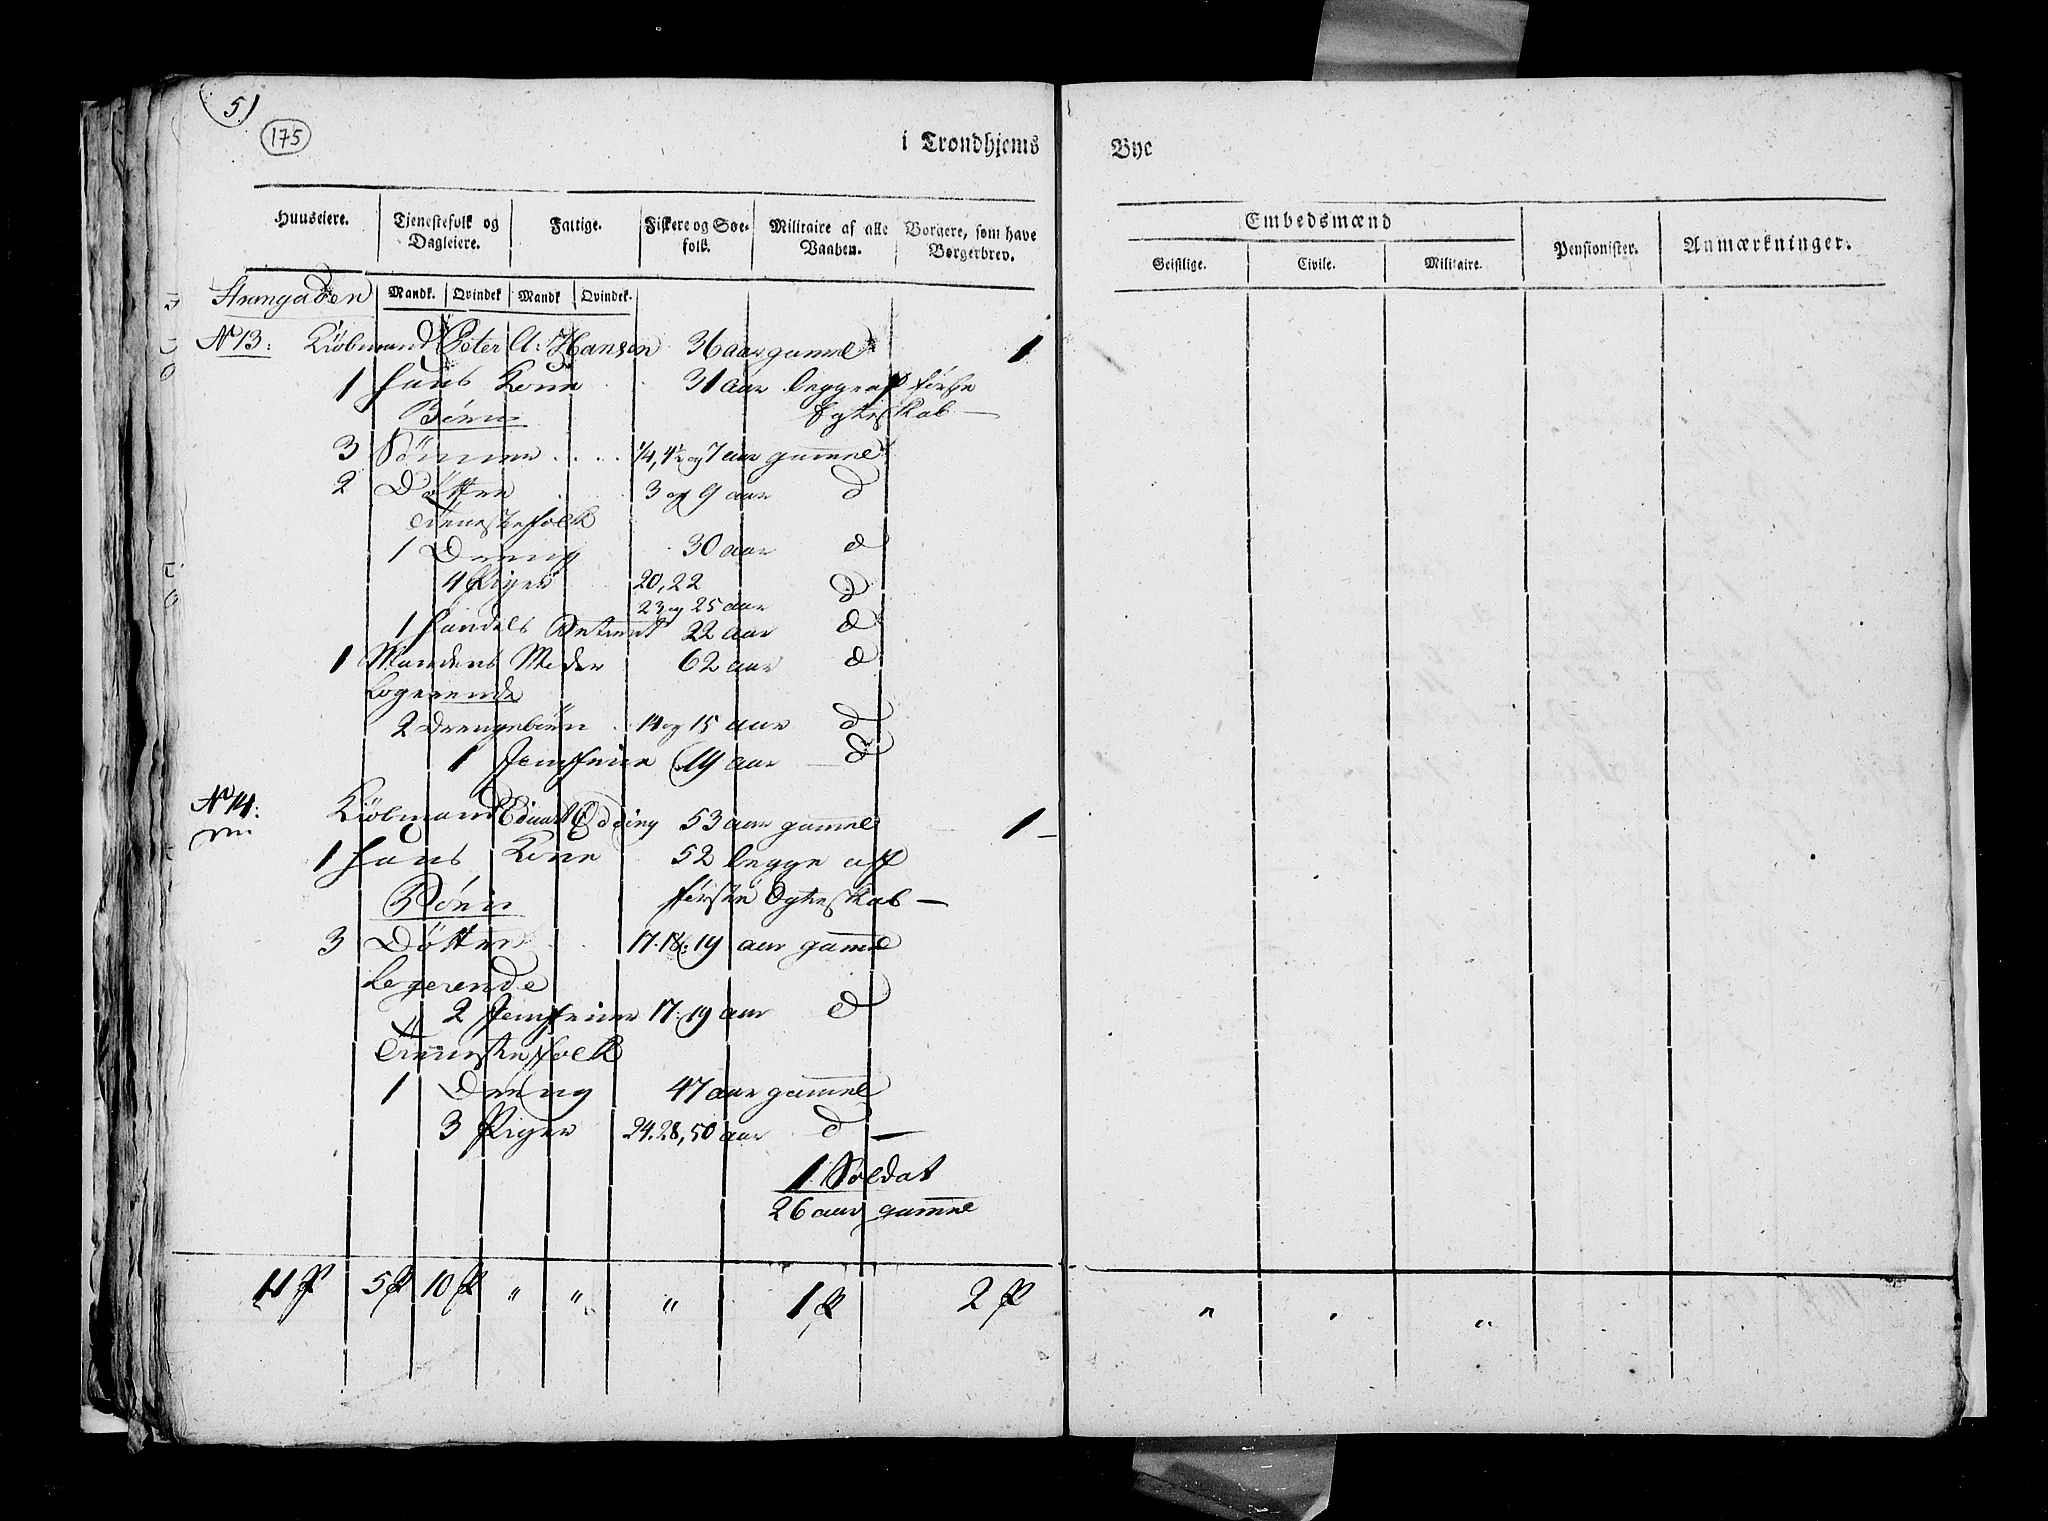 5)
175
i Trondhjems
Bye
Huuseiere.
Tjenestefolk og Dagleiere.
Fattige.
Fiskere og Søefolk.
Militaire af alle Vaaben.
Borgere, som have Borgerbrev.
Embedsmænd
Geistlige.
Civile.
Militaire.
Pensionister.
Anmærkninger.
Mandk. Qvindek Mandk Qvindek.
Strangaden
No 13: Kiöbmand Peter A: Hansen 36 aar gammel 1
1 Hans Kone 31 aar begge af första
Egteskab —
Börn
3 Sönner .... 1/4, 4 1/2 og 7 aar gammel
2 Döttre ..... 3 og 9 aar d
Tieneste folk
1 Dreng 30 aar d
4 Piger 20, 22
23 og 25 aar d
1 Handels Betient 22 aar d
1 Mandens Moder 62 aar d
Logerende
2 Drengebörn 14 og 15 aar d
1 Jomfrue 19 aar d
No 14: Kiöbmand Eduart Odding 53 aar gammel 1 —
1 Hans Kone 52 begge aff
försten Egteskab —
Börn
3 Döttre 17. 18. 19 aar gammel
Logerende
2 Jomfruer 17. 19 aar d
Tienneste folk
1 Dreng 47 aar gammel
3 Piger 24. 28, 50 aar d —
1 Soldat
26 aar gammel
11 P 5 P 10 P " " " 1 P 2 P " " "